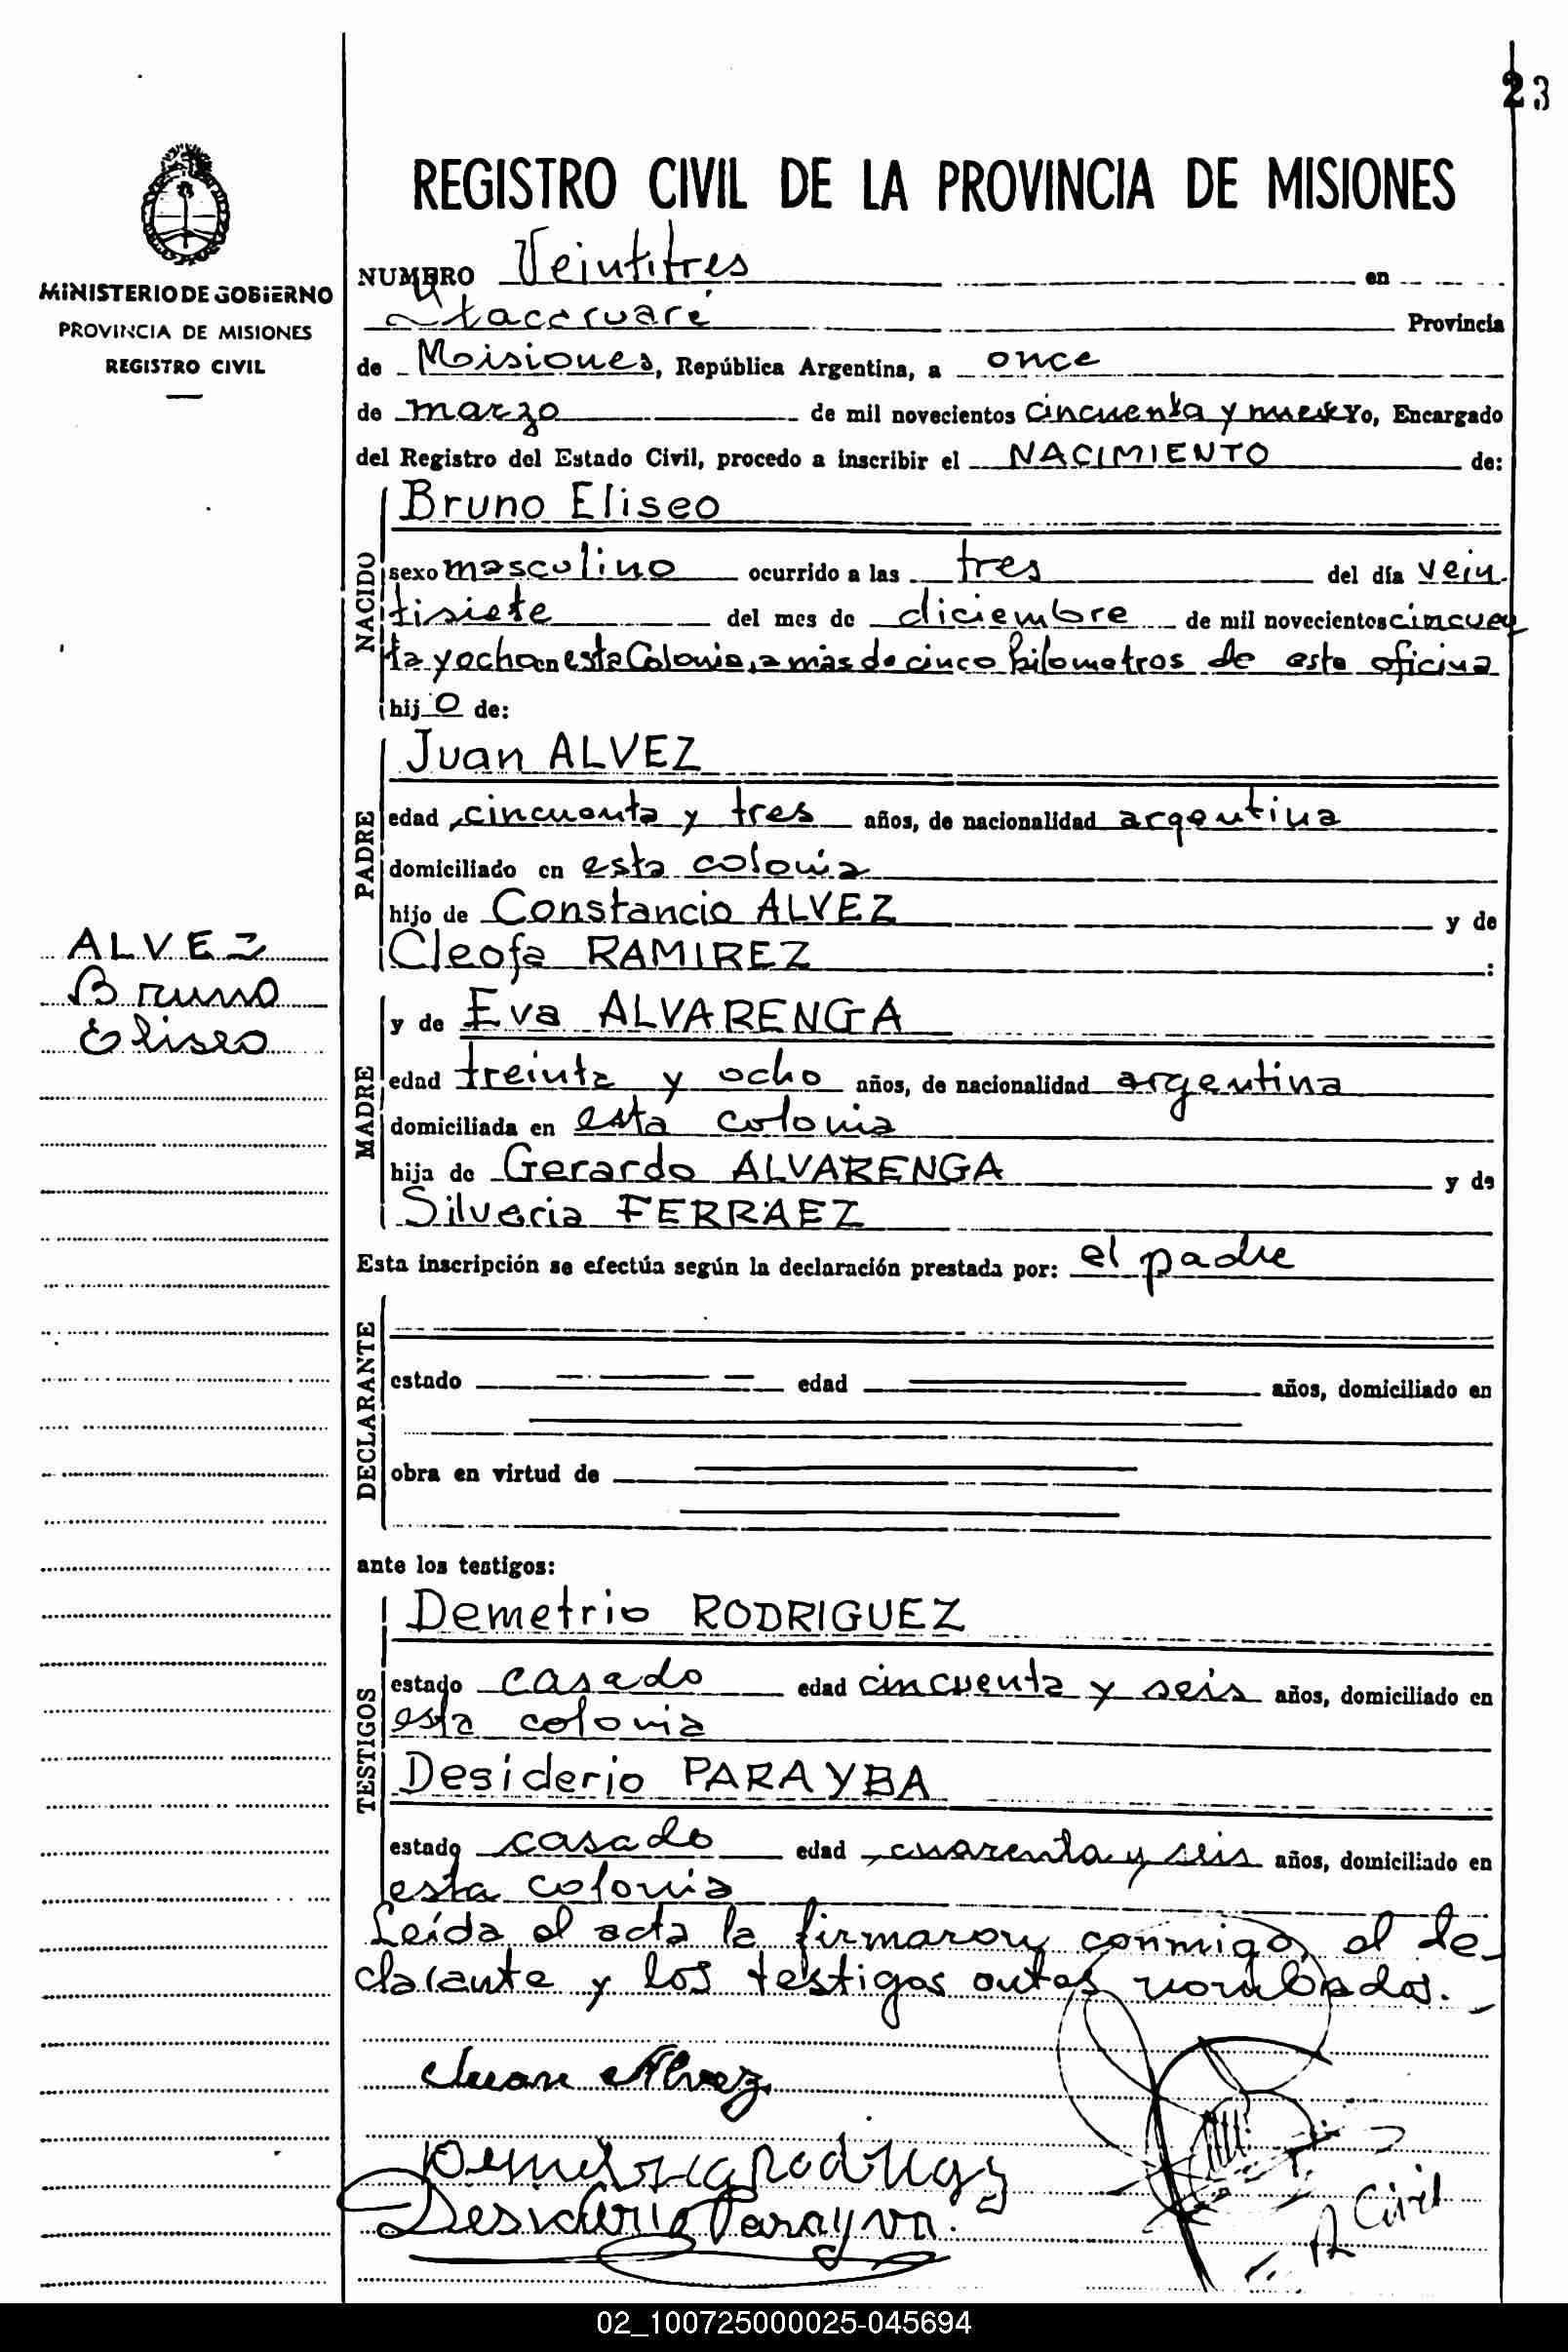 23
REGISTRO CIVIL DE LA PROVINCIA DE MISIONES
MINISTERIO DE GOBIERNO
PROVINCIA DE MISIONES
REGISTRO CIVIL
NUMERO Veintitres en
Itacaruaré Provincia
de Misiones, República Argentina, a once
de marzo de mil novecientos cincuenta y nueve Yo, Encargado
del Registro del Estado Civil, procedo a inscribir el NACIMIENTO de:
NACIDO
Bruno Eliseo
sexo masculino ocurrido a las tres del día vein
tisiete del mes de diciembre de mil novecientos cincuen
ta y ocho en esta Colonia, a más de cinco kilometros de esta oficina
hijo de:
PADRE
Juan ALVEZ
edad cincuenta y tres años, de nacionalidad argentina
domiciliado en esta colonia
hijo de Constancio ALVEZ y de
Cleofa RAMIREZ :
ALVEZ
Bruno
Eliseo
MADRE
y de Eva ALVARENGA
edad treinta y ocho años, de nacionalidad argentina
domiciliada en esta colonia
hija de Gerardo ALVARENGA y de
Silveria FERRAEZ
Esta inscripción se efectúa según la declaración prestada por: el padre
DECLARANTE
estado edad años, domiciliado en
obra en virtud de
ante los testigos:
TESTIGOS
Demetrio RODRIGUEZ
estado casado edad cincuenta y seis años, domiciliado en
esta colonia
Desiderio PARAYBA
estado casado edad cuarenta y seis años, domiciliado en
esta colonia
Leída el acta la firmaron conmigo, el de-
clarante y los testigos antes nombrados.-
Juan Alvez
Demetrio Rodriguez
Desiderio Parayva.
R Civil
02_100725000025-045694